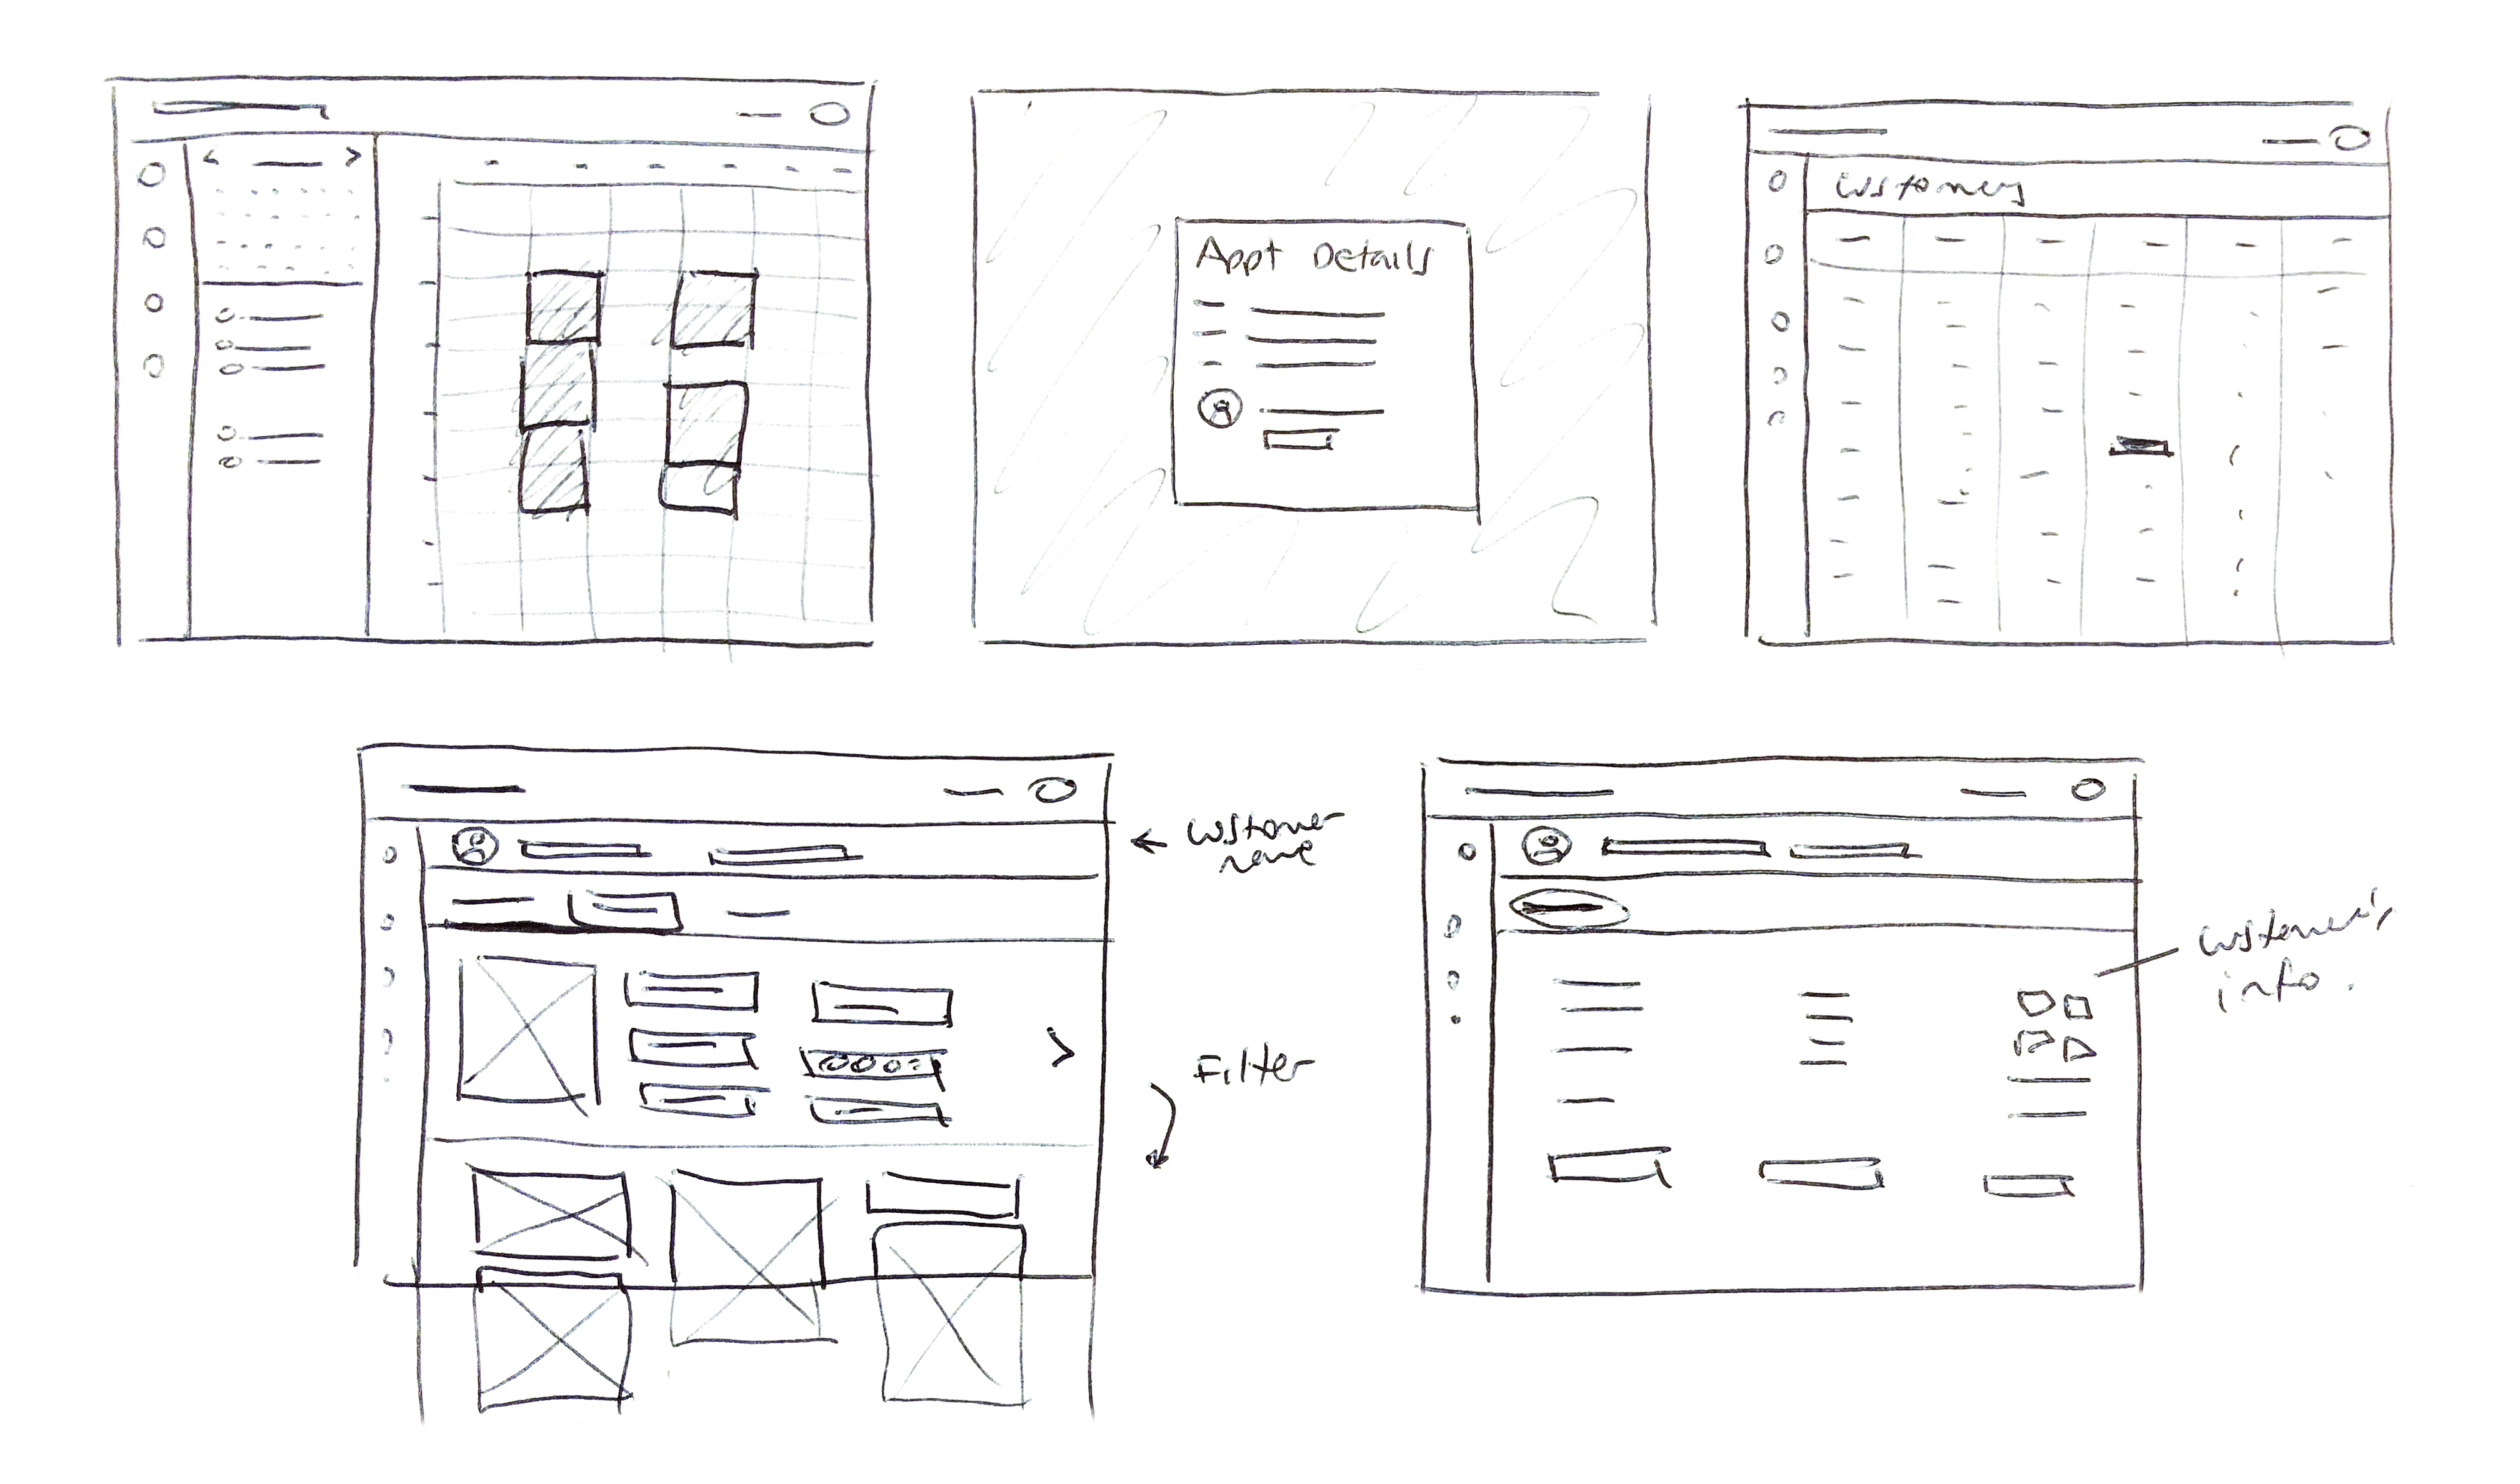 Appt Details
Customers
← Customer
name
Filter
Customer's
info.